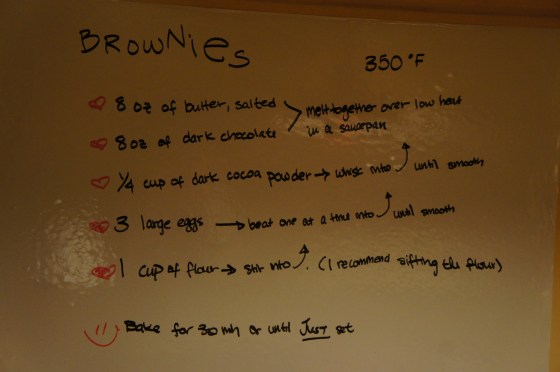 BROWNIES
350 °F
8 oz of butter, salted
melt together over low heat
8 oz of dark chocolate
in a saucepan
1/4 cup of dark cocoa powder → whisk into until smooth
3 large eggs → beat one at a time into until smooth
1 cup of flour → stir into . (I recommend sifting the flour)
Bake for 30 min or until Just set